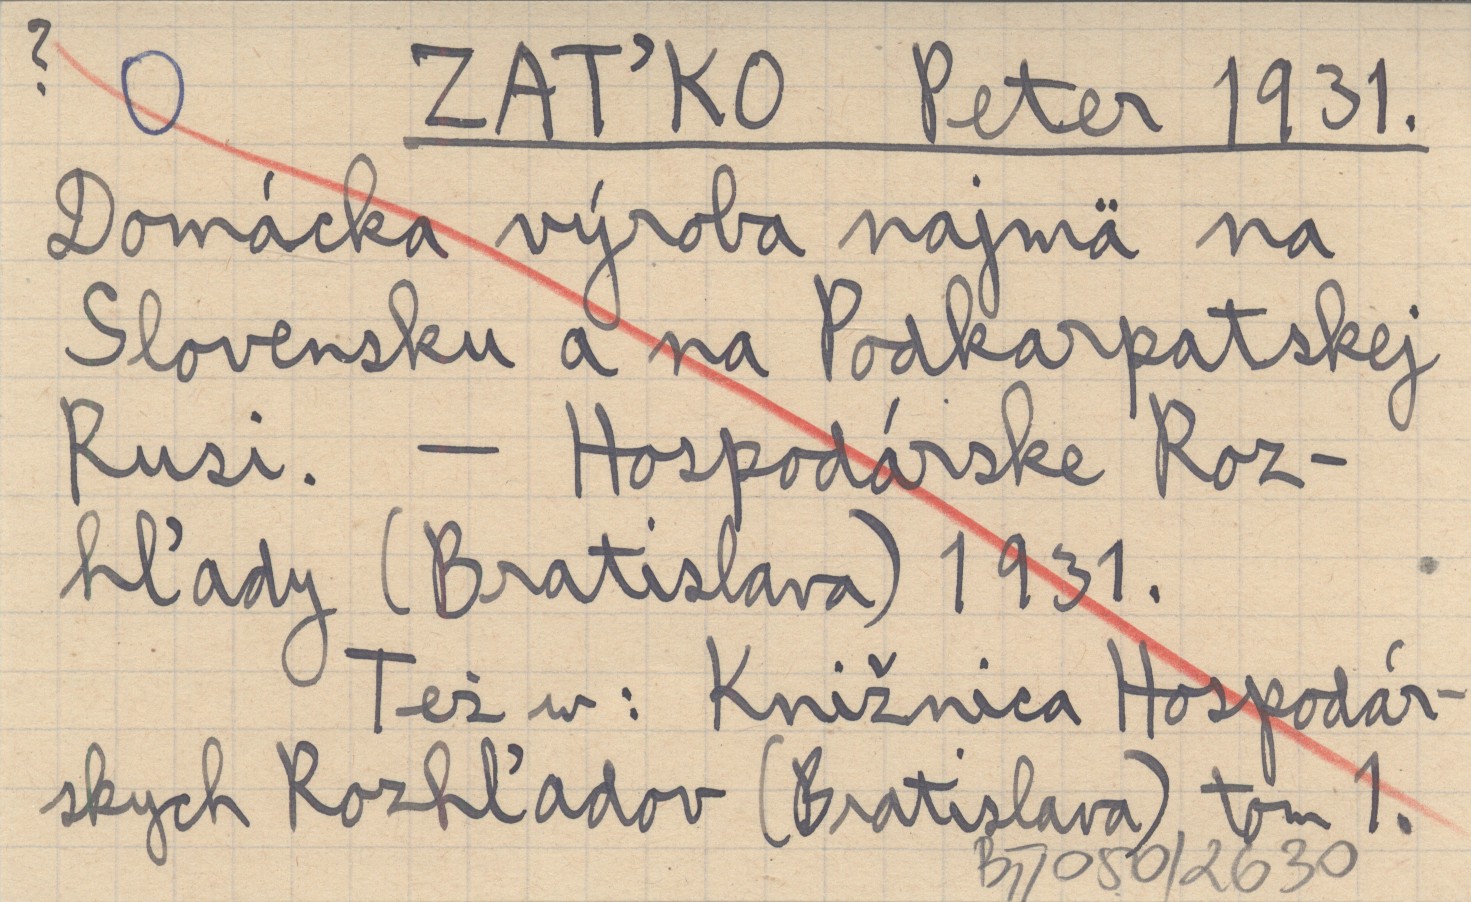 ? O ZAŤKO Peter 1931.
Domácka výroba najmä na
Slovensku a na Podkarpatskej
Rusi. — Hospodárske Roz-
hľady (Bratislava) 1931.
Też w: Knižnica Hospodár-
skych Rozhľadov (Bratislava) tom 1.
050/2630